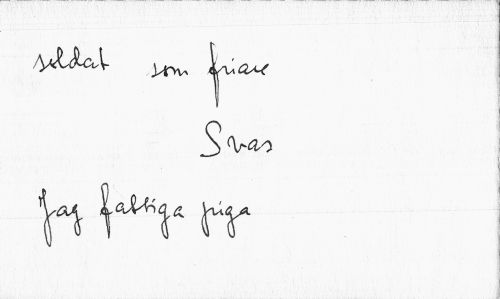 soldat som friare
Svar
Jag fattiga piga